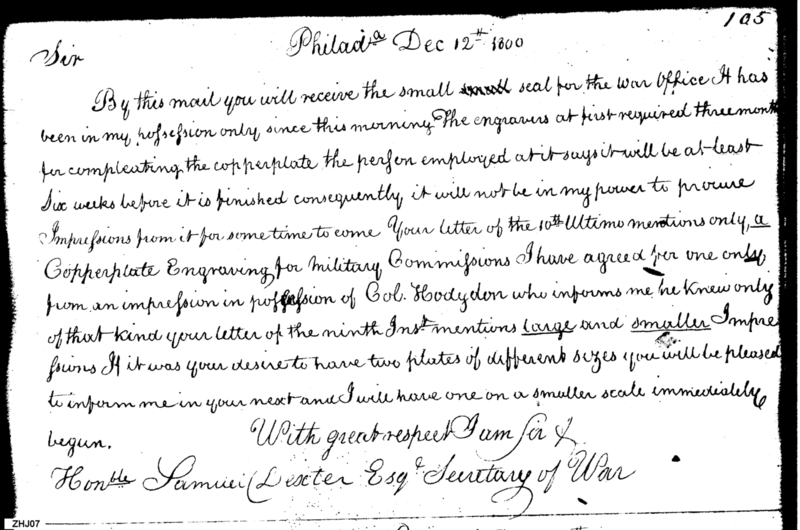 105
Philada Dec 12th 1800
Sir
By this mail you will receive the small small seal for the War Office It has
been in my possession only since this morning The engravers at first required three month
for compleating the copperplate the person employed at it says it will be at least
Six weeks before it is finished consequently it will not be in my power to procure
Impressions from it for some time to come Your letter of the 10th Ultimo mentions only, a
Copperplate Engraving for Military Commissions I have agreed for one only
from an impression in possession of Col. Hodgdon who informs me he knew only
of that kind your letter of the ninth Inst mentions large and smaller Impre
ssions If it was your desire to have two plates of different sizes you will be pleased
to inform me in your next and I will have one on a smaller scale immediately
begun.
With great respect I am Sir &
Honble Samuel Dexter Esqr Secretary of War
ZHJ07